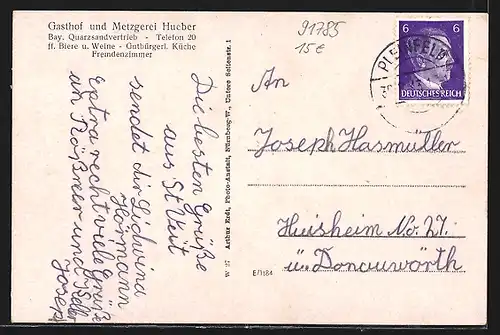 Gasthof und Metzgerei Hueber
Bay. Quarzsandvertrieb - Telefon 20
ff. Biere u. Weine - Gutbürgerl. Küche
Fremdenzimmer
91785
15€
6 6
DEUTSCHES REICH
PLEINFELD
Die besten Grüße
aus St. Veit
sendet dir Lidwina
Hörmann
Extra recht viele Grüße
an und
Josep
W 27 Arthur Redl, Photo-Anstalt, Ellenberg-W., Untere Seitenstr. 1
An
Joseph Hasmüller
Huisheim No. 27.
ü. Donauwörth
E/1184